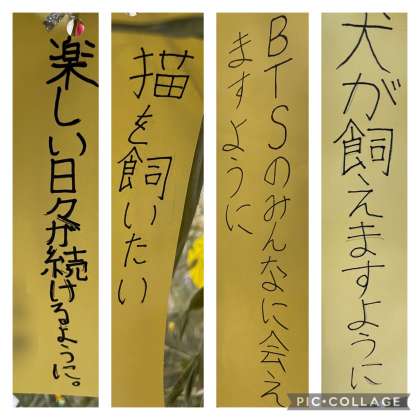 楽しい日々が続けるように。
描を飼いたい
BTSのみんなに会え
ますように
犬が飼えますように
PIC•COLLAGE